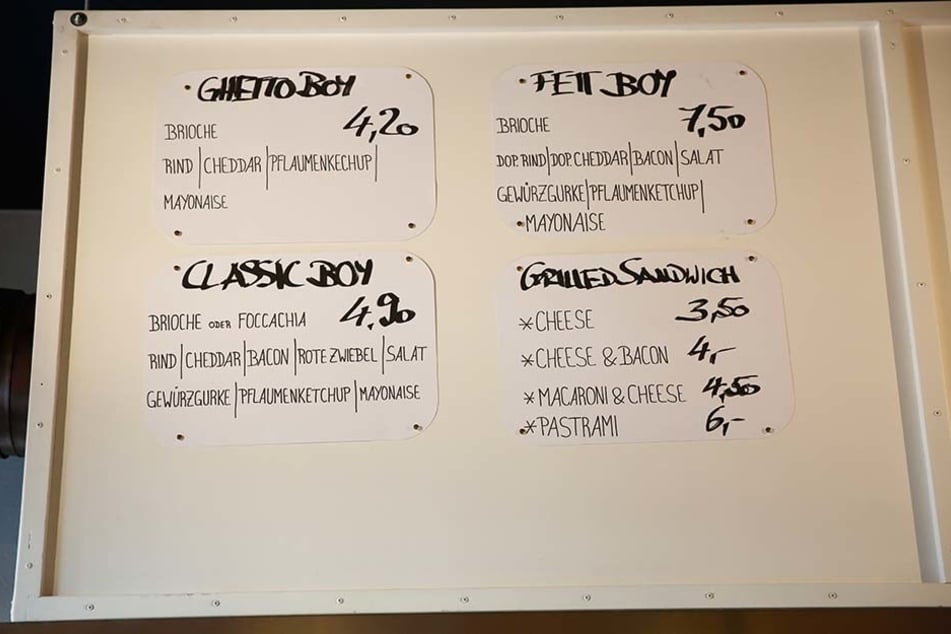 GHETTO BOY
BRIOCHE 4,20
RIND | CHEDDAR | PFLAUMENKECHUP |
MAYONAISE
FETT BOY
BRIOCHE 7,50
DOP. RIND | DOP. CHEDDAR | BACON | SALAT
GEWÜRZGURKE | PFLAUMENKETCHUP |
MAYONAISE
CLASSIC BOY
BRIOCHE ODER FOCCACHIA 4,90
RIND | CHEDDAR | BACON | ROTE ZWIEBEL | SALAT
GEWÜRZGURKE | PFLAUMENKETCHUP | MAYONAISE
GRILLED SANDWICH
*CHEESE 3,50
*CHEESE & BACON 4,-
*MACARONI & CHEESE 4,50
*PASTRAMI 6,-